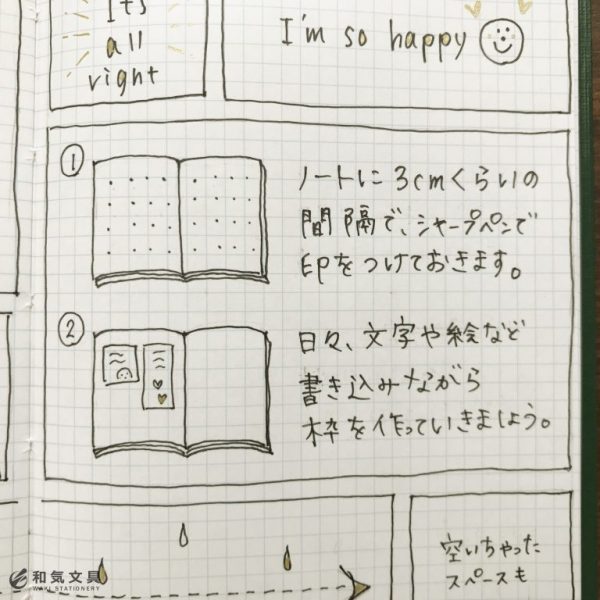 It's
all
right
I'm so happy
①
ノートに3cmくらいの
間隔で、シャープペンで
印をつけておきます。
②
日々、文字や絵など
書き込みながら
枠を作っていきましょう。
空いちゃった
スペースも
和気文具
WAKI STATIONERY